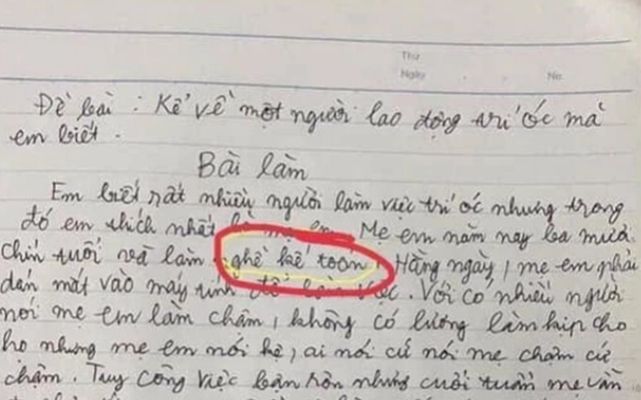 Thứ
Ngày No
Đề bài : Kể về một người lao động trí óc mà
em biết.
Bài làm
Em biết rất nhiều người làm việc trí óc nhưng trong
đó em thích nhất là mẹ em. Mẹ em năm nay ba mươi
chín tuổi và làm nghề kế toán. Hằng ngày, mẹ em phải
dán mắt vào máy tính để làm việc. Với có nhiều người
nói mẹ em làm chậm, không có lương làm kịp cho
họ nhưng mẹ em nói kệ, ai nói cứ nói mẹ chậm cứ
chậm. Tuy công việc bận rộn nhưng cuối tuần mẹ vẫn